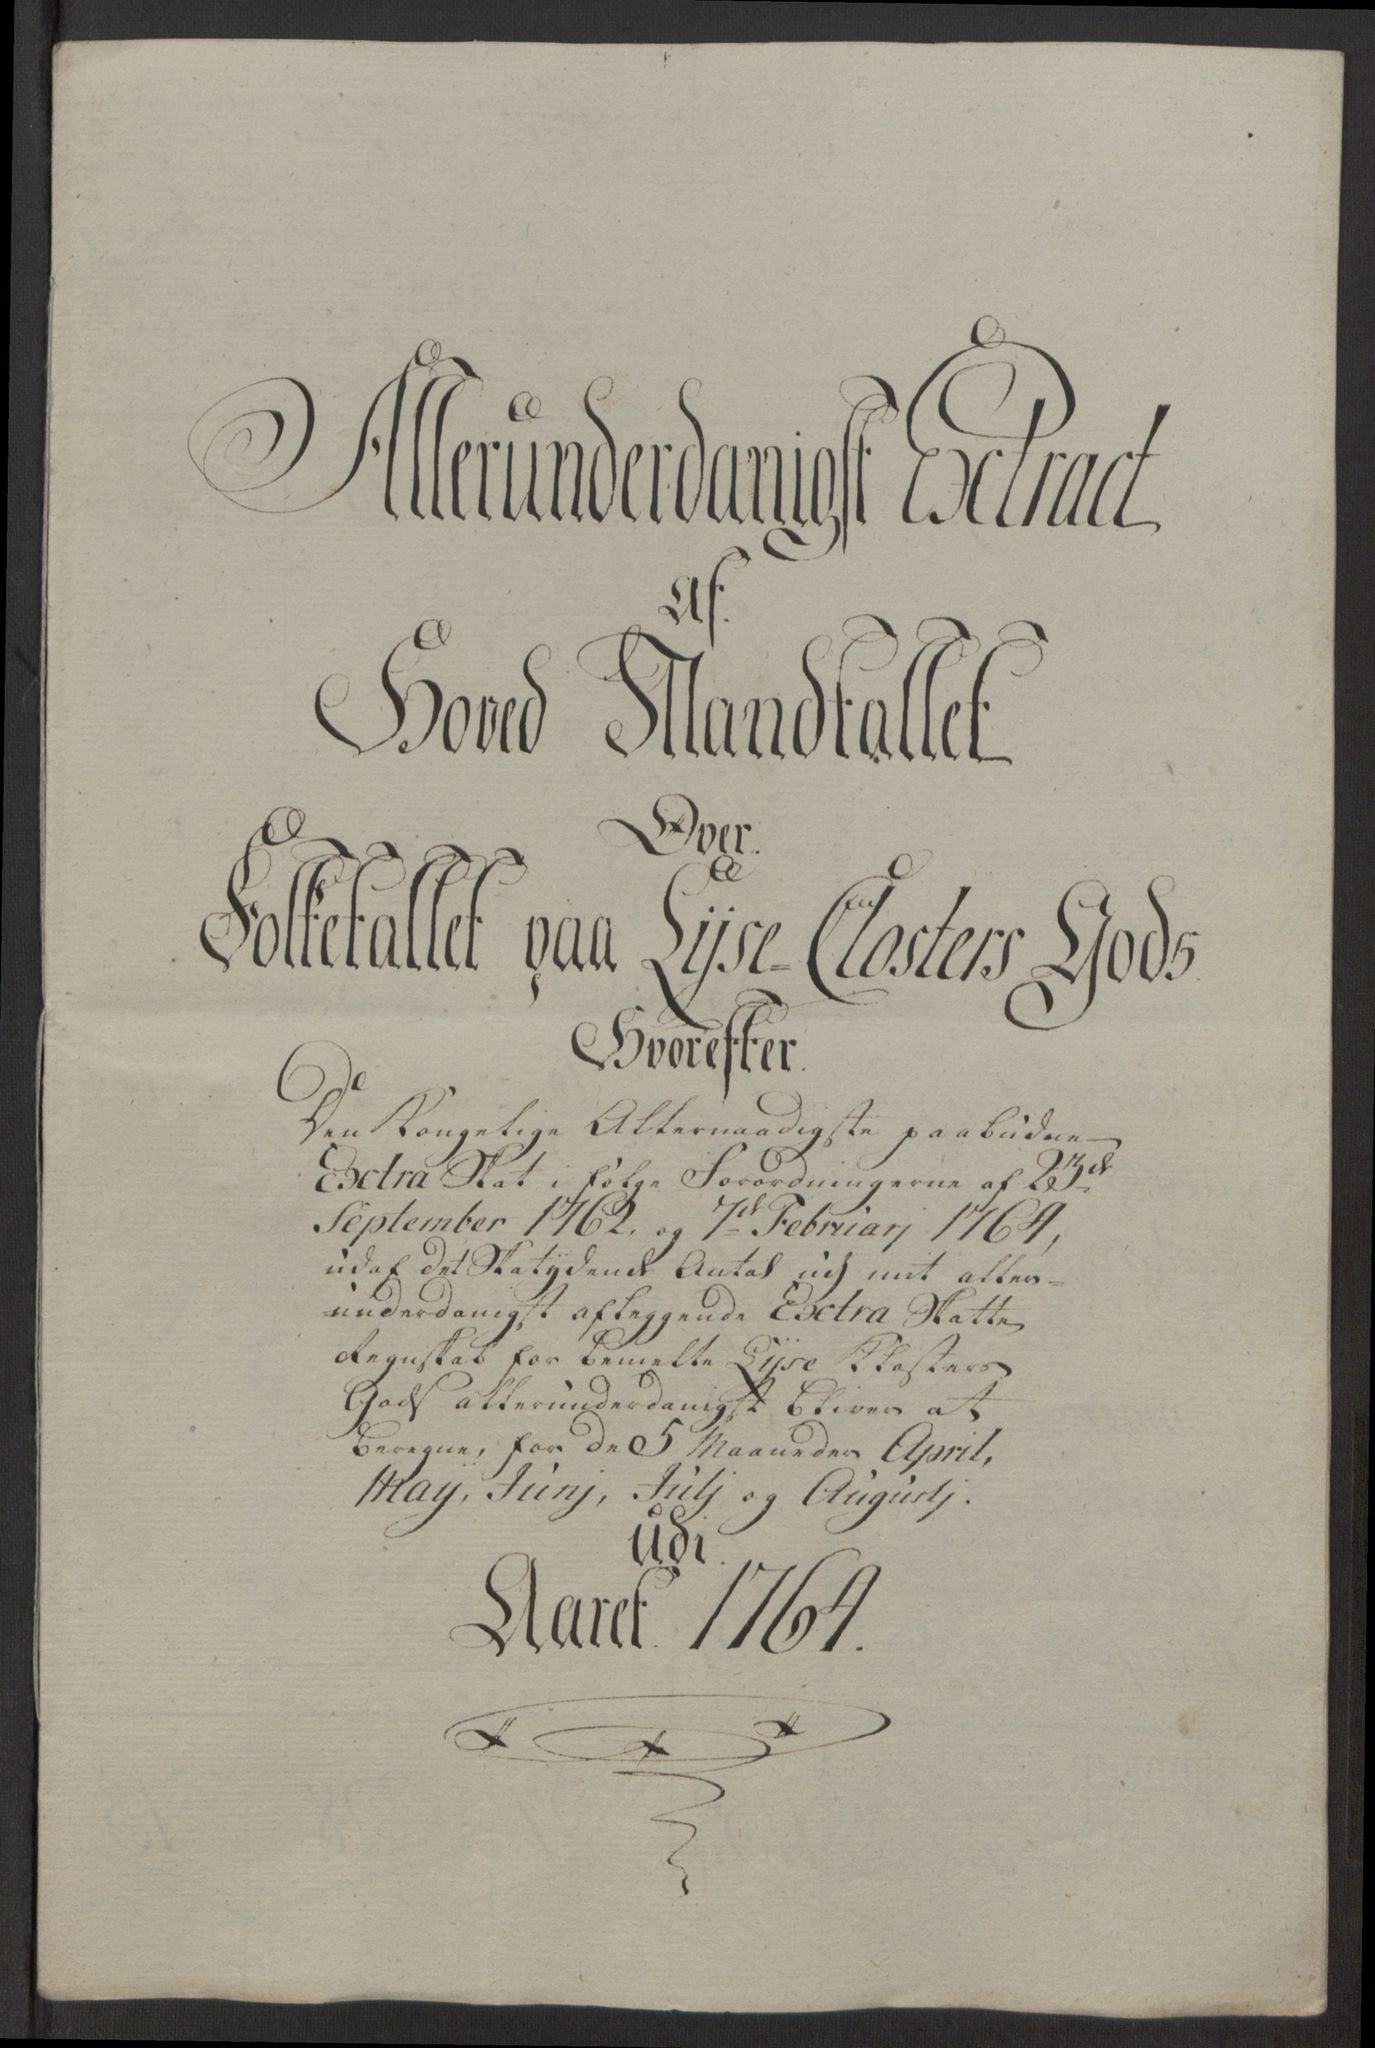 Allerunderdanigst Extract
Af
Hoved Mandtallet
Over
Folketallet paa Lÿse-Closters Gods
Hvorefter
Den Kongelige Allernaadigste paabudne
Extra Skat i følge Forordningerne af 23de
September 1762. og 7de Februarj 1764,
udaf det Skatÿdende Antal udj mit aller-
underdanigst aflæggende Extra Skatte
Regnskab for bemelte Lÿse Klosters
Gods allerunderdanigst bliver at
beregne, for de 5 Maaneder April,
Maÿ, Junj, Julj og Augustj.
udi
Aaret 1764.